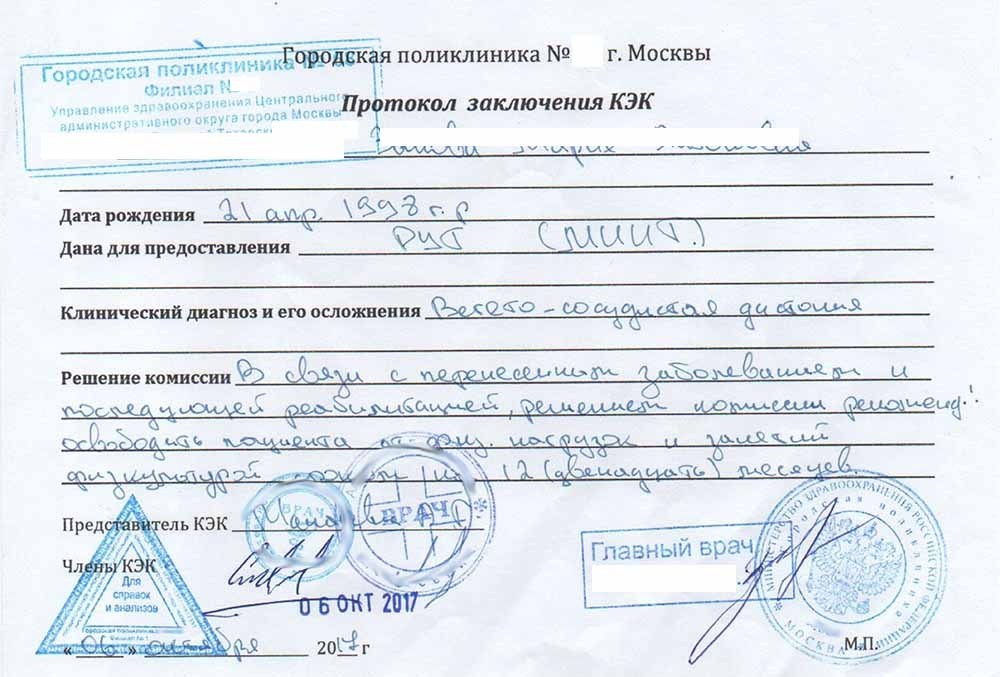 Городская поликлиника № г. Москвы
Городская поликлиника №
Филиал №
Управление здравоохранения Центрального
административного округа города Москвы
Протокол заключения КЭК
Дата рождения 21 апр. 1998 г.р
Дана для предоставления РУТ (МИИТ.)
Клинический диагноз и его осложнения Вегето-сосудистая дистония
Решение комиссии В связи с перенесенным заболеванием и
последующей реабилитацией, решением комиссии рекоменд.:
освободить пациента от физ. нагрузок и занятий
физкультурой на 12 (двенадцать) месяцев.
Представитель КЭК
ВРАЧ
ВРАЧ
Члены КЭК
Для
справок
и анализов
Городская поликлиника
Филиал № 1
06 ОКТ 2017
Главный врач
МИНИСТЕРСТВО ЗДРАВООХРАНЕНИЯ РОССИЙСКОЙ ФЕДЕРАЦИИ
городская поликлиника
МОСКВА
« 06 » октября 2017 г
М.П.